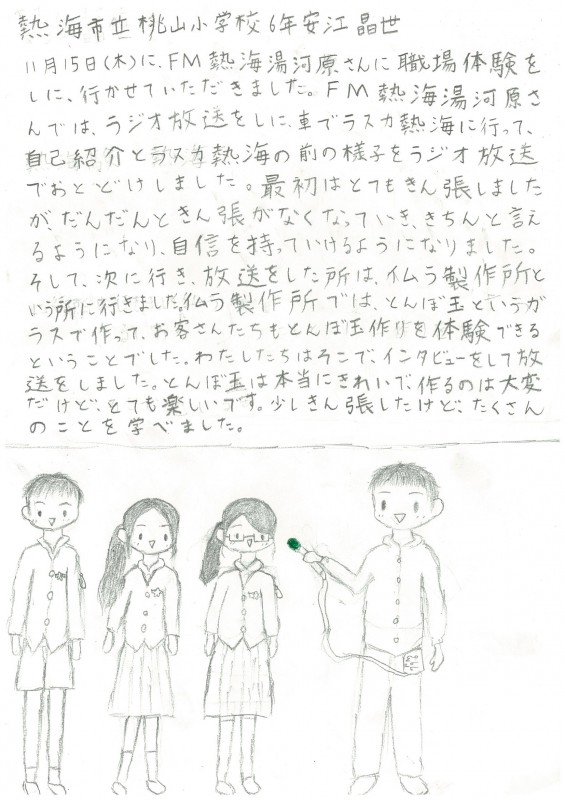 熱海市立桃山小学校6年安江晶世
11月15日(木)に、FM熱海湯河原さんに職場体験を
しに、行かせていただきました。FM熱海湯河原さ
んでは、ラジオ放送をしに、車でラスカ熱海に行って、
自己紹介とラスカ熱海の前の様子をラジオ放送
でおとどけしました。最初はとてもきん張しました
が、だんだんときん張がなくなっていき、きちんと言え
るようになり、自信を持っていけるようになりました。
そして、次に行き、放送をした所は、イムラ製作所と
いう所に行きました。イムラ製作所では、とんぼ玉というガ
ラスで作って、お客さんたちもとんぼ玉作りを体験できる
ということでした。わたしたちはそこで、インタビューをして放
送をしました。とんぼ玉は本当にきれいで、作るのは大変
だけど、とても楽しいです。少しきん張したけど、たくさん
のことを学べました。